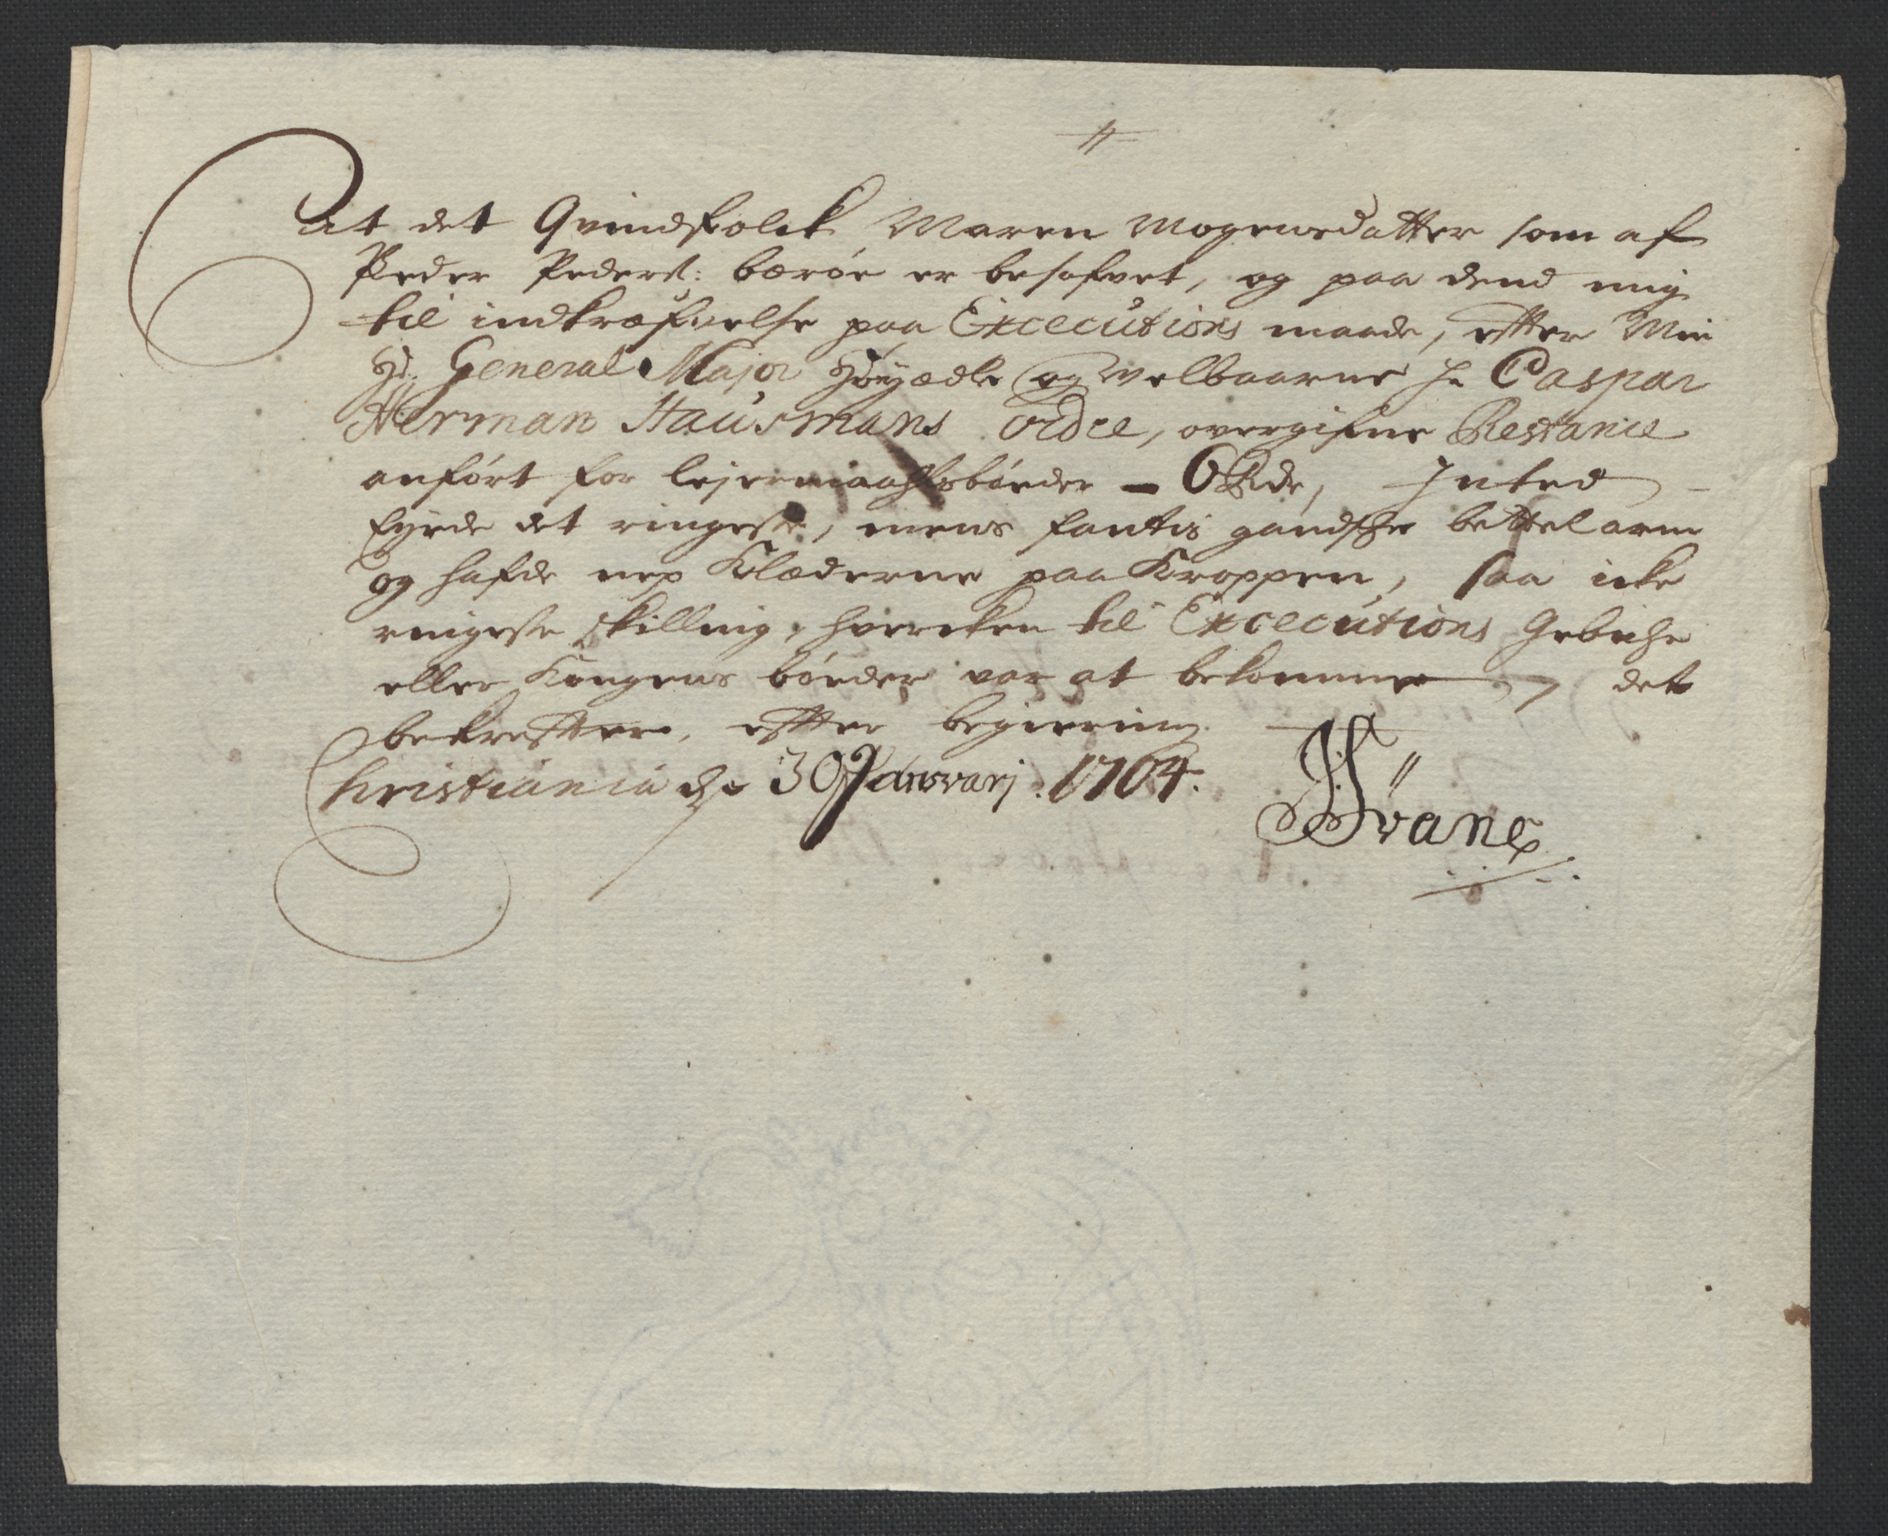 At det Qvindfolck Maren Mogensdatter som af
Peder Peders: bærøe er besofvet, og paa dend mig
til indkræfvelse paa Excecutions maade, efter Min
Hr. General Major Höyædle og Welbaarne Hr Caspar
Herman Hausmans ordre, overgifne Restance
anført for lejermaahlsbøeder – 6 Rdr, Inted
Eyede det ringeste, mens fantis gandshe bettel arm
og hafde nep Klæderne paa Kroppen, saa icke
ringeste skilling, hvercken til Excecutions Gebühr
eller Kongens bøeder var at bekomme, det
bekrefter, efter begiering.
Christiania de 30 Janvarj. 1704.
Svane